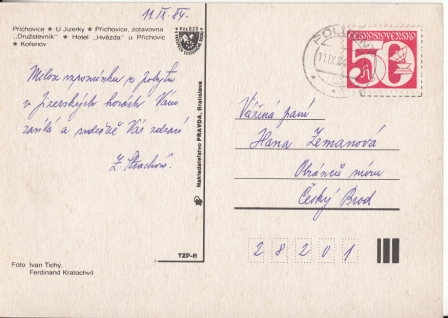 11.IX.84.
Příchovice ★ U Jizerky ★ Příchovice, zotavovna
„Družstevník" ★ Hotel „Hvězda" u Příchovic
★ Kořenov
Kčs 0,20
Milou vzpomínku z pobytu
v Jizerských horách Vám
zasílá a srdečně Vás zdraví
Z. Strachová
Foto Ivan Tichý,
Ferdinand Kratochvíl
Nakladatelstvo PRAVDA, Bratislava
TZP-II
11.IX.84
ČESKOSLOVENSKO
50
Vážená paní
Hana Zemanová
Obránců míru
Český Brod
28201